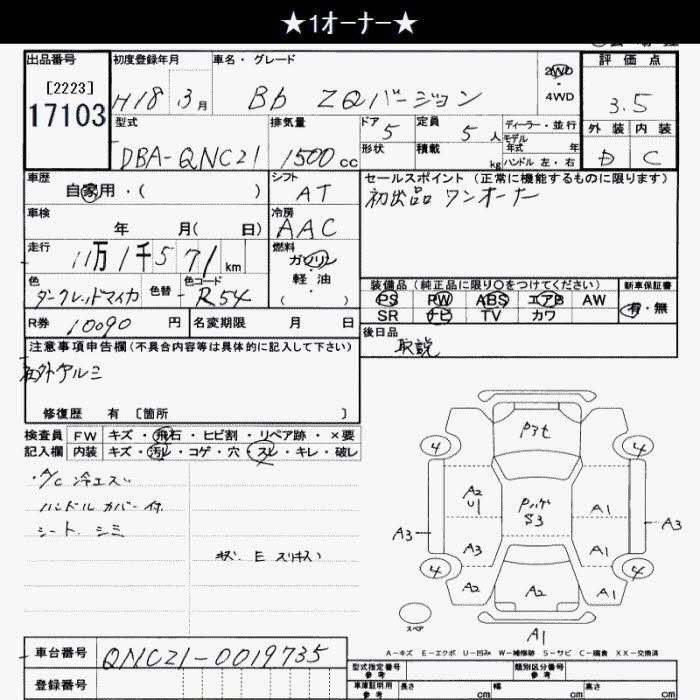 ★1オーナー★
出品番号 初度登録年月 車名・グレード 2WD 評価点
[2223] ・4WD
17103 H18 3月 Bb ZQバージョン 3.5
型式 排気量 ドア 5 定員 5人 ディーラー・並行 外装 内装
DBA-QNC21 1500cc 形状 積載 kg モデル年式 年 D C
ハンドル 左・右
車歴 シフト セールスポイント (正常に機能するものに限ります)
自家用・( ) AT 初出品 ワンオーナー
車検 冷房
年 月( 日) AAC
走行 燃料
11万1千571km ガソリン・軽油・( )
色 色替 色コード 装備品(純正品に限り○をつけてください) 新車保証書
ダークレッドマイカ R54 PS PW ABS エアB AW 有・無
SR ナビ TV カワ
R券 10090円 名変期限 月 日 後日品
注意事項申告欄(不具合内容等は具体的に記入して下さい) 取説
社外アルミ
修復歴 有 [箇所 ]
検査員 FW キズ・飛石・ヒビ割・リペア跡・×要
記入欄 内装 キズ・汚レ・コゲ・穴・スレ・キレ・破レ
・A/C 冷エズ
ハンドルカバー付
シート シミ
キズ E スリキズ
P3t
4 4
A2 U1 S3 A1
A3 A3
A3 A1
4 4
A2 A2 A1
スペア
A1
A-キズ E-エクボ U-凹み W-補修跡 S-サビ C-腐食 XX-交換済
車台番号 QNC21-0019735 型式指定番号 参考 類別区分番号 参考
登録番号 車庫証明用 参考 長さ cm 幅 cm 高さ cm